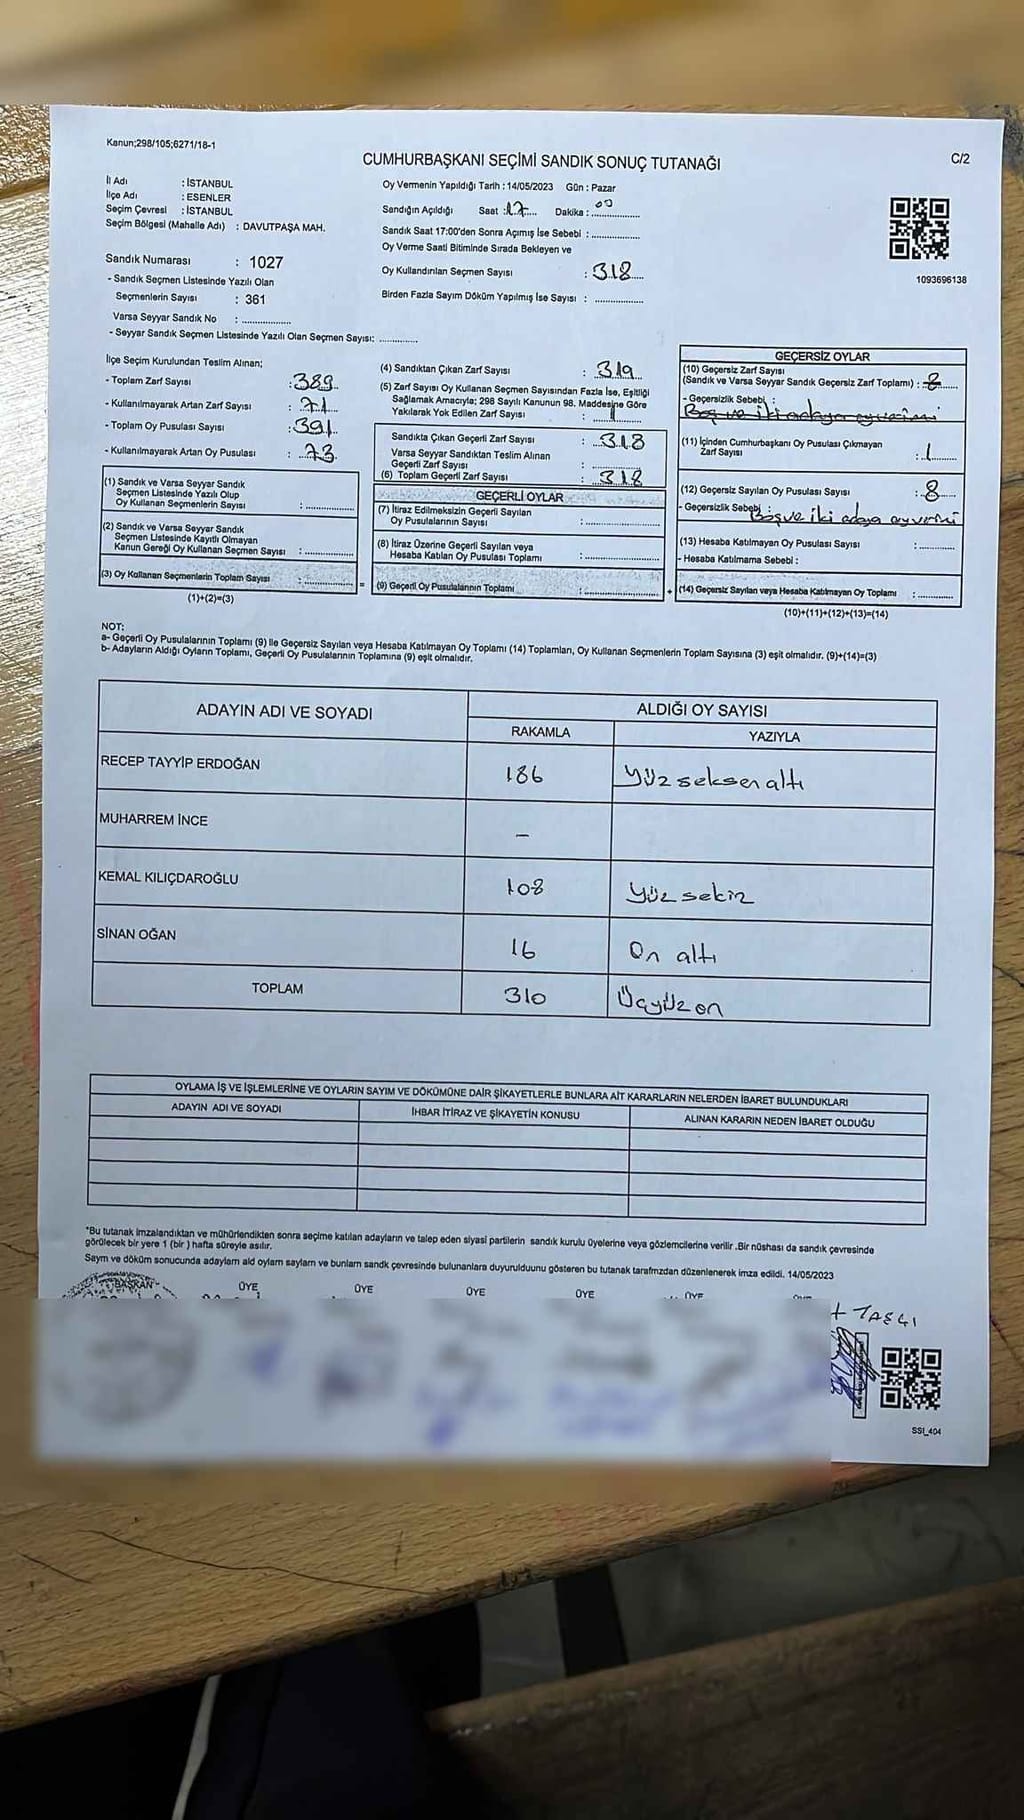 Kanun;298/105;6271/18-1
CUMHURBAŞKANI SEÇİMİ SANDIK SONUÇ TUTANAĞI
C/2
İl Adı : İSTANBUL
İlçe Adı : ESENLER
Seçim Çevresi : İSTANBUL
Seçim Bölgesi (Mahalle Adı) : DAVUTPAŞA MAH.
Sandık Numarası : 1027
- Sandık Seçmen Listesinde Yazılı Olan
Seçmenlerin Sayısı : 361
Varsa Seyyar Sandık No : ................
- Seyyar Sandık Seçmen Listesinde Yazılı Olan Seçmen Sayısı: ............
Oy Vermenin Yapıldığı Tarih : 14/05/2023 Gün : Pazar
Sandığın Açıldığı Saat : 17 Dakika : 00
Sandık Saat 17:00'den Sonra Açımış İse Sebebi : ................
Oy Verme Saati Bitiminde Sırada Bekleyen ve
Oy Kullandırılan Seçmen Sayısı : 318
Birden Fazla Sayım Döküm Yapılmış İse Sayısı : ................
1093696138
İlçe Seçim Kurulundan Teslim Alınan;
- Toplam Zarf Sayısı : 389
- Kullanılmayarak Artan Zarf Sayısı : 71
- Toplam Oy Pusulası Sayısı : 391
- Kullanılmayarak Artan Oy Pusulası : 73
(1) Sandık ve Varsa Seyyar Sandık
Seçmen Listesinde Yazılı Olup
Oy Kullanan Seçmenlerin Sayısı : ................
(2) Sandık ve Varsa Seyyar Sandık
Seçmen Listesinde Kayıtlı Olmayan
Kanun Gereği Oy Kullanan Seçmen Sayısı : ................
(3) Oy Kullanan Seçmenlerin Toplam Sayısı : ................ =
(1)+(2)=(3)
(4) Sandıktan Çıkan Zarf Sayısı : 319
(5) Zarf Sayısı Oy Kullanan Seçmen Sayısından Fazla İse, Eşitliği
Sağlamak Amacıyla; 298 Sayılı Kanunun 98. Maddesine Göre
Yakılarak Yok Edilen Zarf Sayısı : 1
Sandıkta Çıkan Geçerli Zarf Sayısı : 318
Varsa Seyyar Sandıktan Teslim Alınan
Geçerli Zarf Sayısı : ................
(6) Toplam Geçerli Zarf Sayısı : 318
GEÇERLİ OYLAR
(7) İtiraz Edilmeksizin Geçerli Sayılan
Oy Pusulalarının Sayısı : ................
(8) İtiraz Üzerine Geçerli Sayılan veya
Hesaba Katılan Oy Pusulası Toplamı : ................
(9) Geçerli Oy Pusulalarının Toplamı : ................ +
GEÇERSİZ OYLAR
(10) Geçersiz Zarf Sayısı
(Sandık ve Varsa Seyyar Sandık Geçersiz Zarf Toplamı) : 8
- Geçersizlik Sebebi :
Boş ve iki adaya oy verimi
(11) İçinden Cumhurbaşkanı Oy Pusulası Çıkmayan
Zarf Sayısı : 1
(12) Geçersiz Sayılan Oy Pusulası Sayısı : 8
- Geçersizlik Sebebi : Boş ve iki adaya oy verimi
(13) Hesaba Katılmayan Oy Pusulası Sayısı : ............
- Hesaba Katılmama Sebebi :
(14) Geçersiz Sayılan veya Hesaba Katılmayan Oy Toplamı : ............
(10)+(11)+(12)+(13)=(14)
NOT:
a- Geçerli Oy Pusulalarının Toplamı (9) İle Geçersiz Sayılan veya Hesaba Katılmayan Oy Toplamı (14) Toplamları, Oy Kullanan Seçmenlerin Toplam Sayısına (3) eşit olmalıdır. (9)+(14)=(3)
b- Adayların Aldığı Oyların Toplamı, Geçerli Oy Pusulalarının Toplamına (9) eşit olmalıdır.
ADAYIN ADI VE SOYADI
ALDIĞI OY SAYISI
RAKAMLA YAZIYLA
RECEP TAYYİP ERDOĞAN 186 Yüz seksen altı
MUHARREM İNCE –
KEMAL KILIÇDAROĞLU 108 Yüz sekiz
SİNAN OĞAN 16 On altı
TOPLAM 310 Üçyüz on
OYLAMA İŞ VE İŞLEMLERİNE VE OYLARIN SAYIM VE DÖKÜMÜNE DAİR ŞİKAYETLERLE BUNLARA AİT KARARLARIN NELERDEN İBARET BULUNDUKLARI
ADAYIN ADI VE SOYADI İHBAR İTİRAZ VE ŞİKAYETİN KONUSU ALINAN KARARIN NEDEN İBARET OLDUĞU
*Bu tutanak imzalandıktan ve mühürlendikten sonra seçime katılan adayların ve talep eden siyasi partilerin sandık kurulu üyelerine veya gözlemcilerine verilir .Bir nüshası da sandık çevresinde
görülecek bir yere 1 (bir ) hafta süreyle asılır.
Sayım ve döküm sonucunda adayların ald oylam saylam ve bunlam sandk çevresinde bulunanlara duyurulduunu gösteren bu tutanak tarafmzdan düzenlenerek imza edildi. 14/05/2023
BAŞKAN ÜYE ÜYE ÜYE ÜYE ÜYE
TAŞÇI
SSI_404